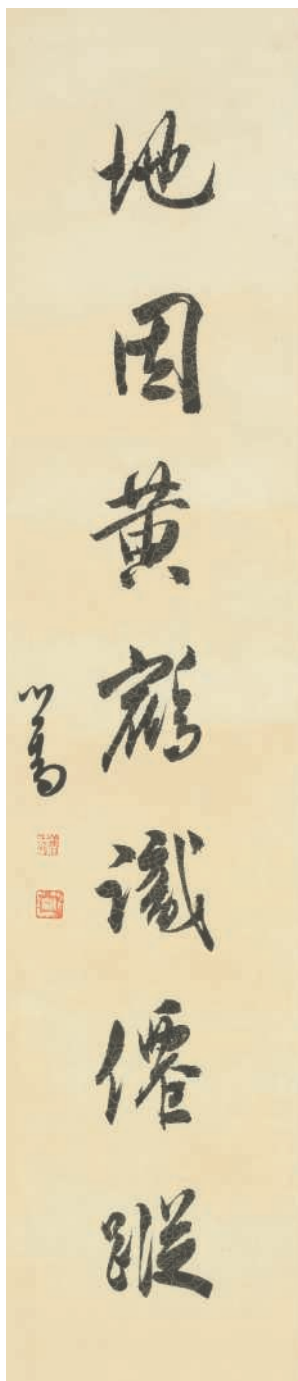 地因黃鶴識僊蹤
心畬